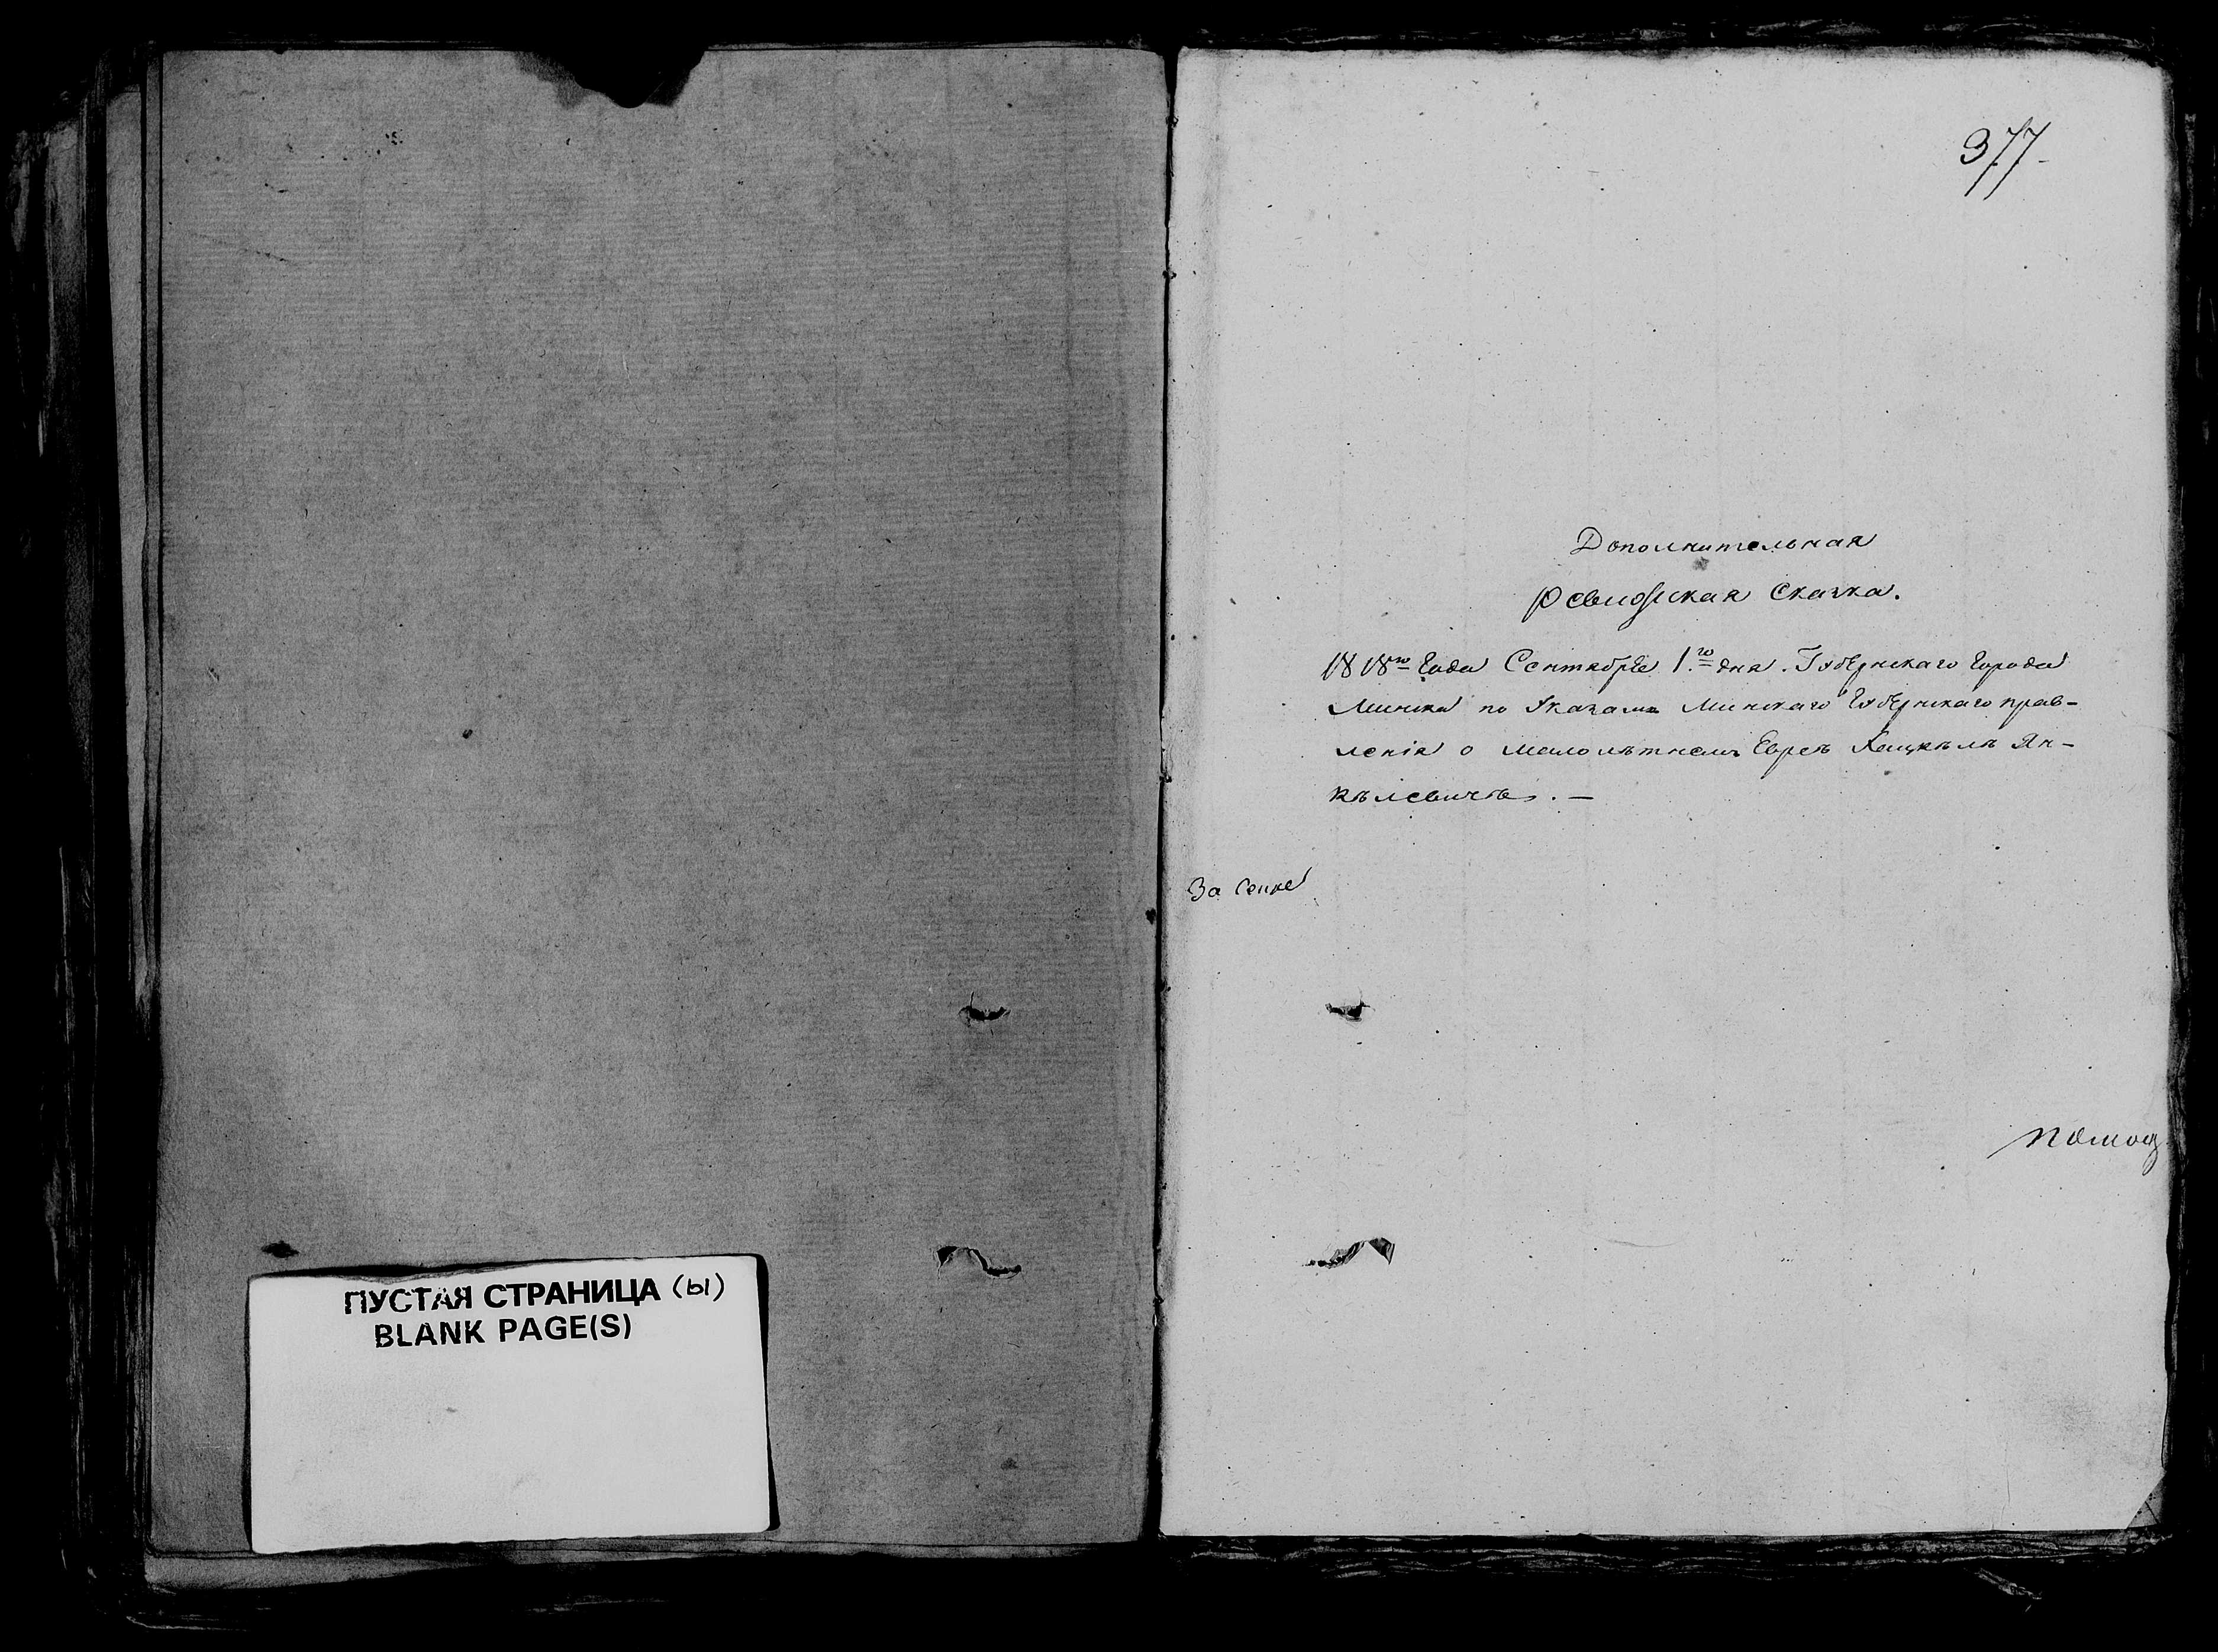 ПУСТАЯ СТРАНИЦА (ы)
BLANK PAGE(S)
377.
Дополнительная
Ревизская Сказка.
1818го Года Сентября 1.го дня. Губернскаго Города
Минска по Указамъ Минскаго Губернскаго прав-
ленія о малолѣтнемъ Евреѣ Хацкѣлѣ Ян-
кѣлевичѣ. —
За